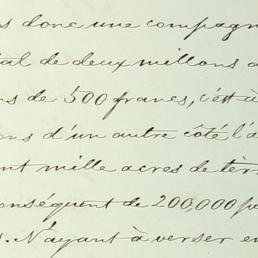 s donc une compagn
al de deux millons d
ns de 500 francs, c'est à
ons d'un autre côté l'a
nt mille acres de ter
onséquent de 200,000 p
. N'ayant à verser en